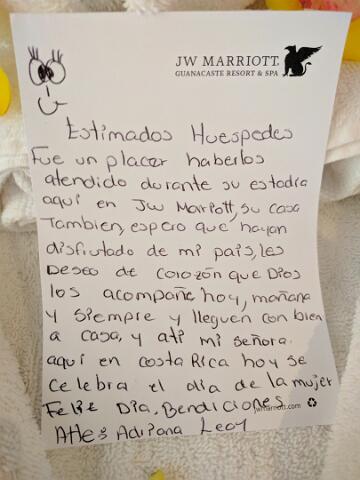 JW MARRIOTT
GUANACASTE RESORT & SPA
Estimados Huespedes
Fue un placer haberlos
atendido durante su estadía
aquí en JW Marriott, su casa
Tambien, espero que hayan
disfrutado de mi pais, les
Deseo de corozón que Dios
los acompañe hoy, mañana
y siempre y lleguen con bien
a casa, y a ti mi señora.
aquí en costa Rica hoy se
celebra el dia de la mujer
Feliz Dia, Bendiciones
jwmarriott.com
Atte: Adriana Leal